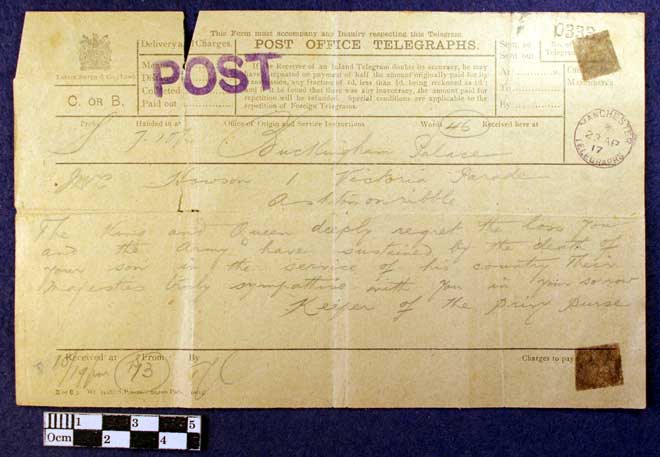 This Form must accompany any Inquiry respecting this Telegram.
POST OFFICE TELEGRAPHS.
Delivery and Charges.
C. OR B.
Collected
Paid out
POST
If the Receiver of an Inland Telegram doubts its accuracy, he may
have it repeated on payment of half the amount originally paid for its
transmission, any fraction of 1d. less than ½d. being reckoned as ½d.;
and if it be found that there was any inaccuracy, the amount paid for
repetition will be refunded. Special conditions are applicable to the
repetition of Foreign Telegrams.
Sent out
At
To
By
MANCHESTER
17
TELEGRAPHS
Prefix
Handed in at
Office of Origin and Service Instructions
Words
46
Received here at
Buckingham Palace
Howson 1 Victoria Parade
Ashtononribble
The King and Queen deeply regret the loss you
and the Army have sustained by the death of
your son in the service of his country Their
Majesties truly sympathise with you in your sorrow
Keeper of the Privy Purse
Received at
From
By
Charges to pay
73
0cm 1 2 3 4 5